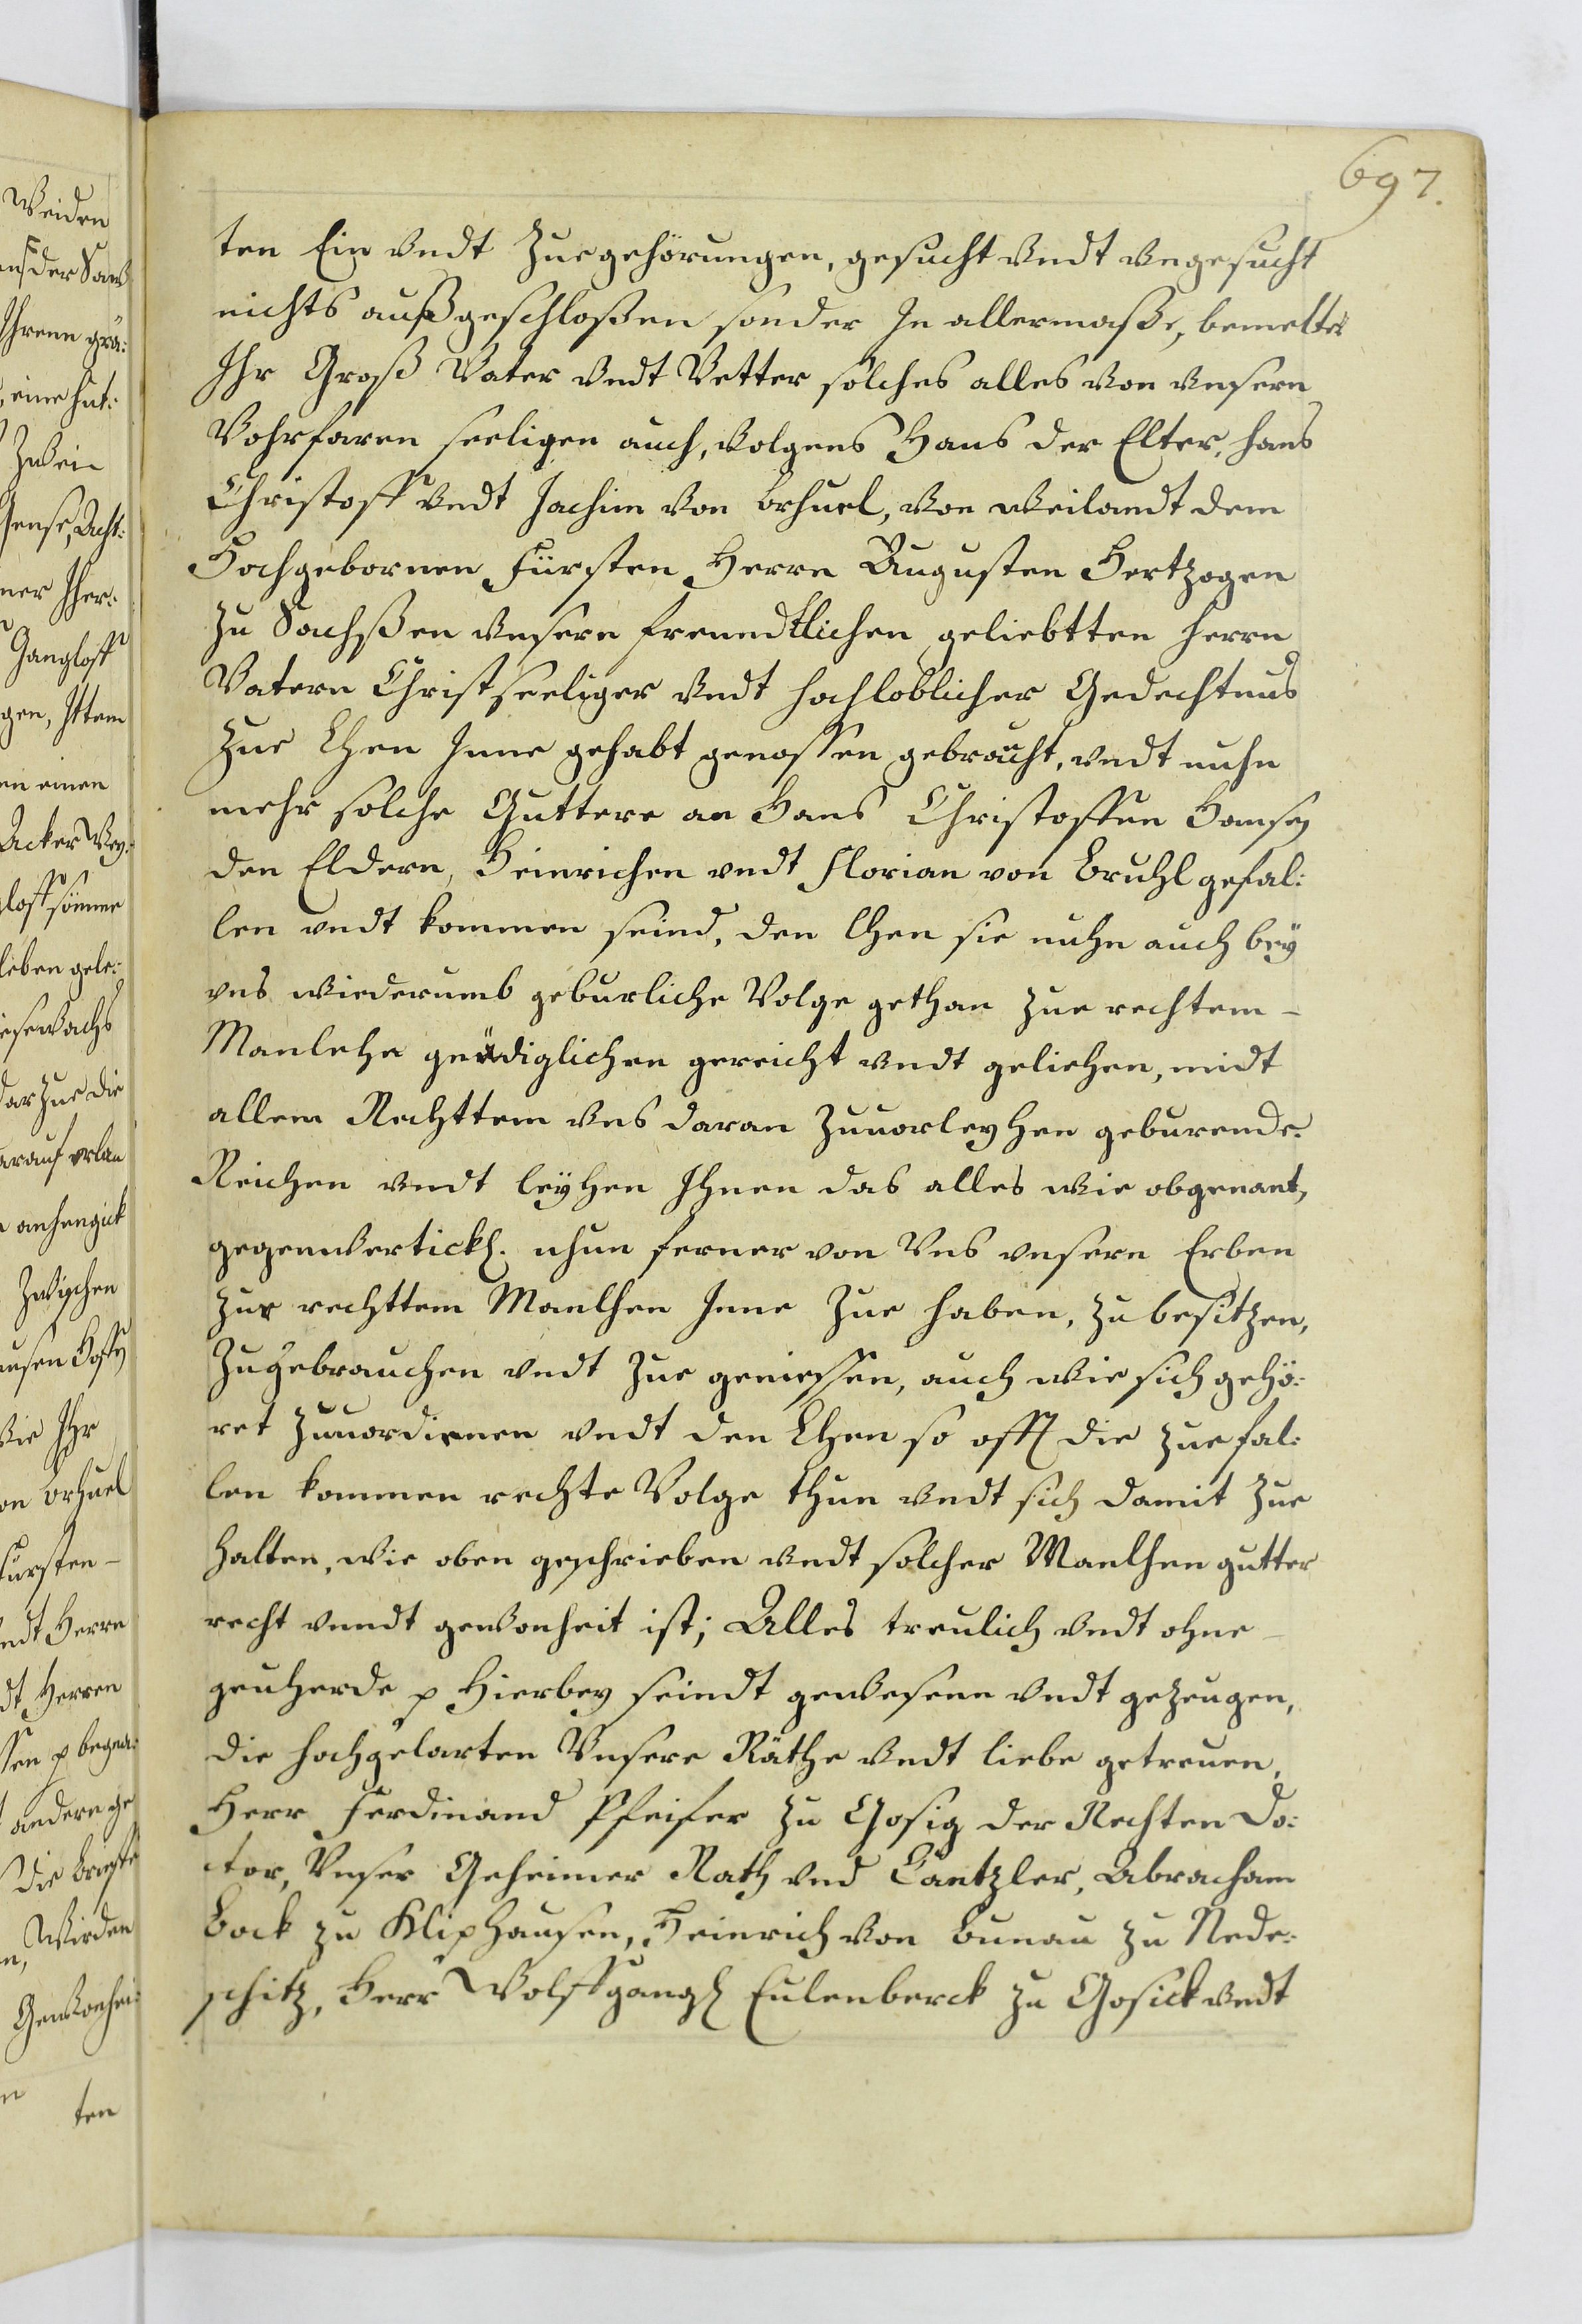 697.
ten Ein vndt Zuegehörungen, gesucht vndt vngesucht
nichts außgeschloßen sonder In allermaße, bemelter
Ihr Groß Vater vndt Vetter solches alles von vnsern
Vohrfaren seeligen auch, volgens Hans der Elter, hans
Christoff vndt Jachim von Brhuel, von weilandt dem
Hochgebornen Fürsten Herrn Augusten Hertzogen
zu Sachßen vnsern freundtlichen geliebtten Herrn
Vatern Christseeliger vndt hochloblicher Gedechtnus
zue Lhen Inne gehabt genossen gebraucht, vndt nuhn
mehr solche Guttere an Hans Christoffen Hansen
den Eldern, Heinrichen vndt Florian von Bruhl gefal:
len vndt kommen seind, den lhen sie nuhn auch bey
vns wiederumb geburliche Volge gethan zue rechtem
Manlehn gnädiglichen gereicht vndt geliehen, midt
allem Rechttem vns daran zuuorleyhen geburende.
Reichen vndt leyhen Ihnen das alles wie obgenant,
gegenwertick. nhun ferner von Vns vnsern Erben
zur rechttem Manlhen Inne zue haben, zu besitzen,
Zugebrauchen vndt zue geniessen, auch wie sich gehö:
ret zuuordienen vndt den Lhen so offt die zue fal:
len kommen rechte Volge thun vndt sich damit zue
halten, wie oben geschrieben vndt solcher Manlhen gutter
recht vnndt gewonheit ist; Alles treulich vndt ohne
geuherde p Hierbey seindt gewesenn vndt gezeugen,
die hochgelarten Vnsere Räthe vndt liebe getreuen,
Herr Ferdinand Pfeifer zu Gosig der Rechten Do:
ctor, Vnser Geheimer Rath vnd Cantzler, Abracham
Bock zu Kliphausen, Heinrich von Bunau zu Nede:
schitz, Herr Wolffgang Eulenberck zu Gosick vndt